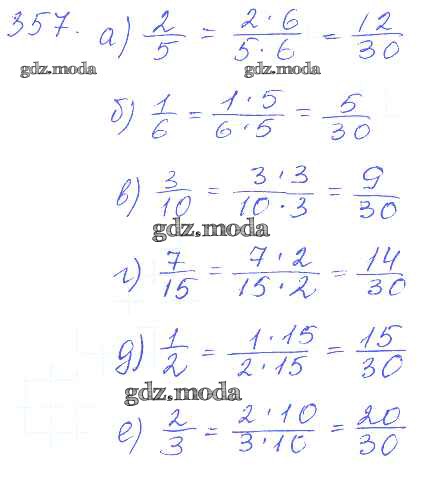 357. а) 2/5 = 2·6/5·6 = 12/30
gdz.moda gdz.moda
б) 1/6 = 1·5/6·5 = 5/30
в) 3/10 = 3·3/10·3 = 9/30
gdz.moda
г) 7/15 = 7·2/15·2 = 14/30
д) 1/2 = 1·15/2·15 = 15/30
gdz.moda
е) 2/3 = 2·10/3·10 = 20/30